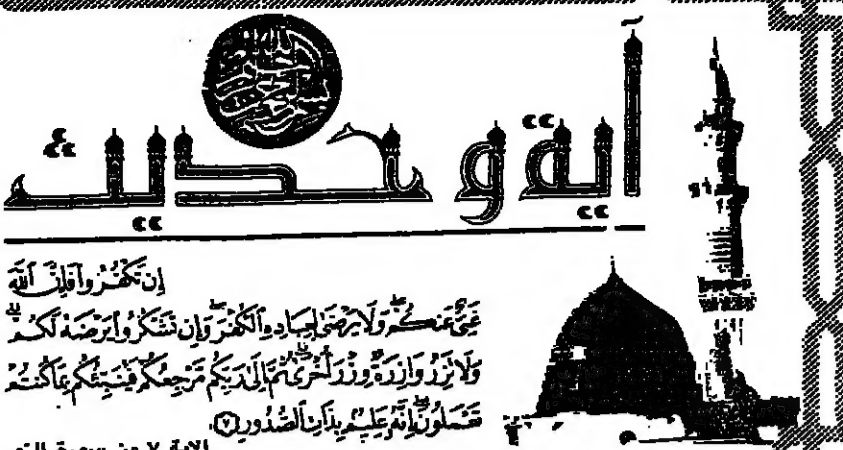 آية و حديث
إِن تَكْفُرُوا فَإِنَّ ٱللَّهَ
غَنِىٌّ عَنكُمْ ۖ وَلَا يَرْضَىٰ لِعِبَادِهِ ٱلْكُفْرَ ۖ وَإِن تَشْكُرُوا يَرْضَهُ لَكُمْ ۗ
وَلَا تَزِرُ وَازِرَةٌ وِزْرَ أُخْرَىٰ ۗ ثُمَّ إِلَىٰ رَبِّكُم مَّرْجِعُكُمْ فَيُنَبِّئُكُم بِمَا كُنتُمْ
تَعْمَلُونَ ۚ إِنَّهُ عَلِيمٌ بِذَاتِ ٱلصُّدُورِ ٧
الآية ٧ من سورة